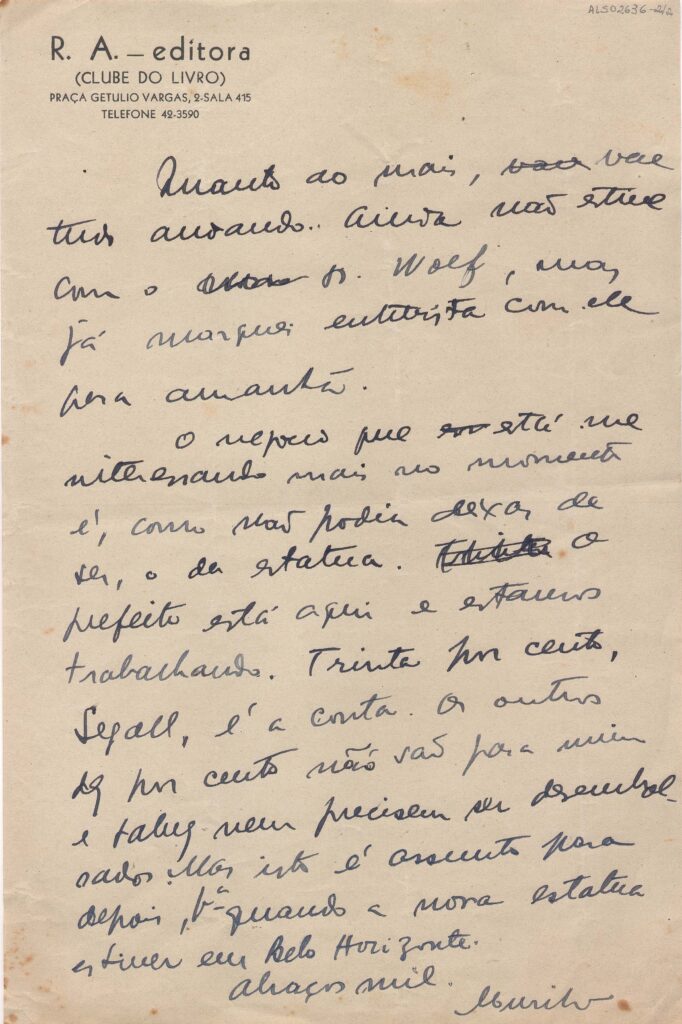 ALS02636-2/2
R. A. — editora
(CLUBE DO LIVRO)
PRAÇA GETULIO VARGAS, 2-SALA 415
TELEFONE 42-3590
Quanto ao mais, vae
tudo andando.. Ainda não estive
com o Wolf, mas
já marquei entrevista com ele
para amanhã.
O negocio que está me
interessando mais no momento
é, como não podia deixar de
ser, o da estatua. O
prefeito está aqui e estamos
trabalhando. Trinta por cento,
Segall, é a conta. Os outros
dez por cento não são para mim
e talvez nem precisem ser desembol-
sados. Mas isto é assunto para
depois, quando a nova estatua
estiver em Belo Horizonte.
Abraços mil.
Murilo